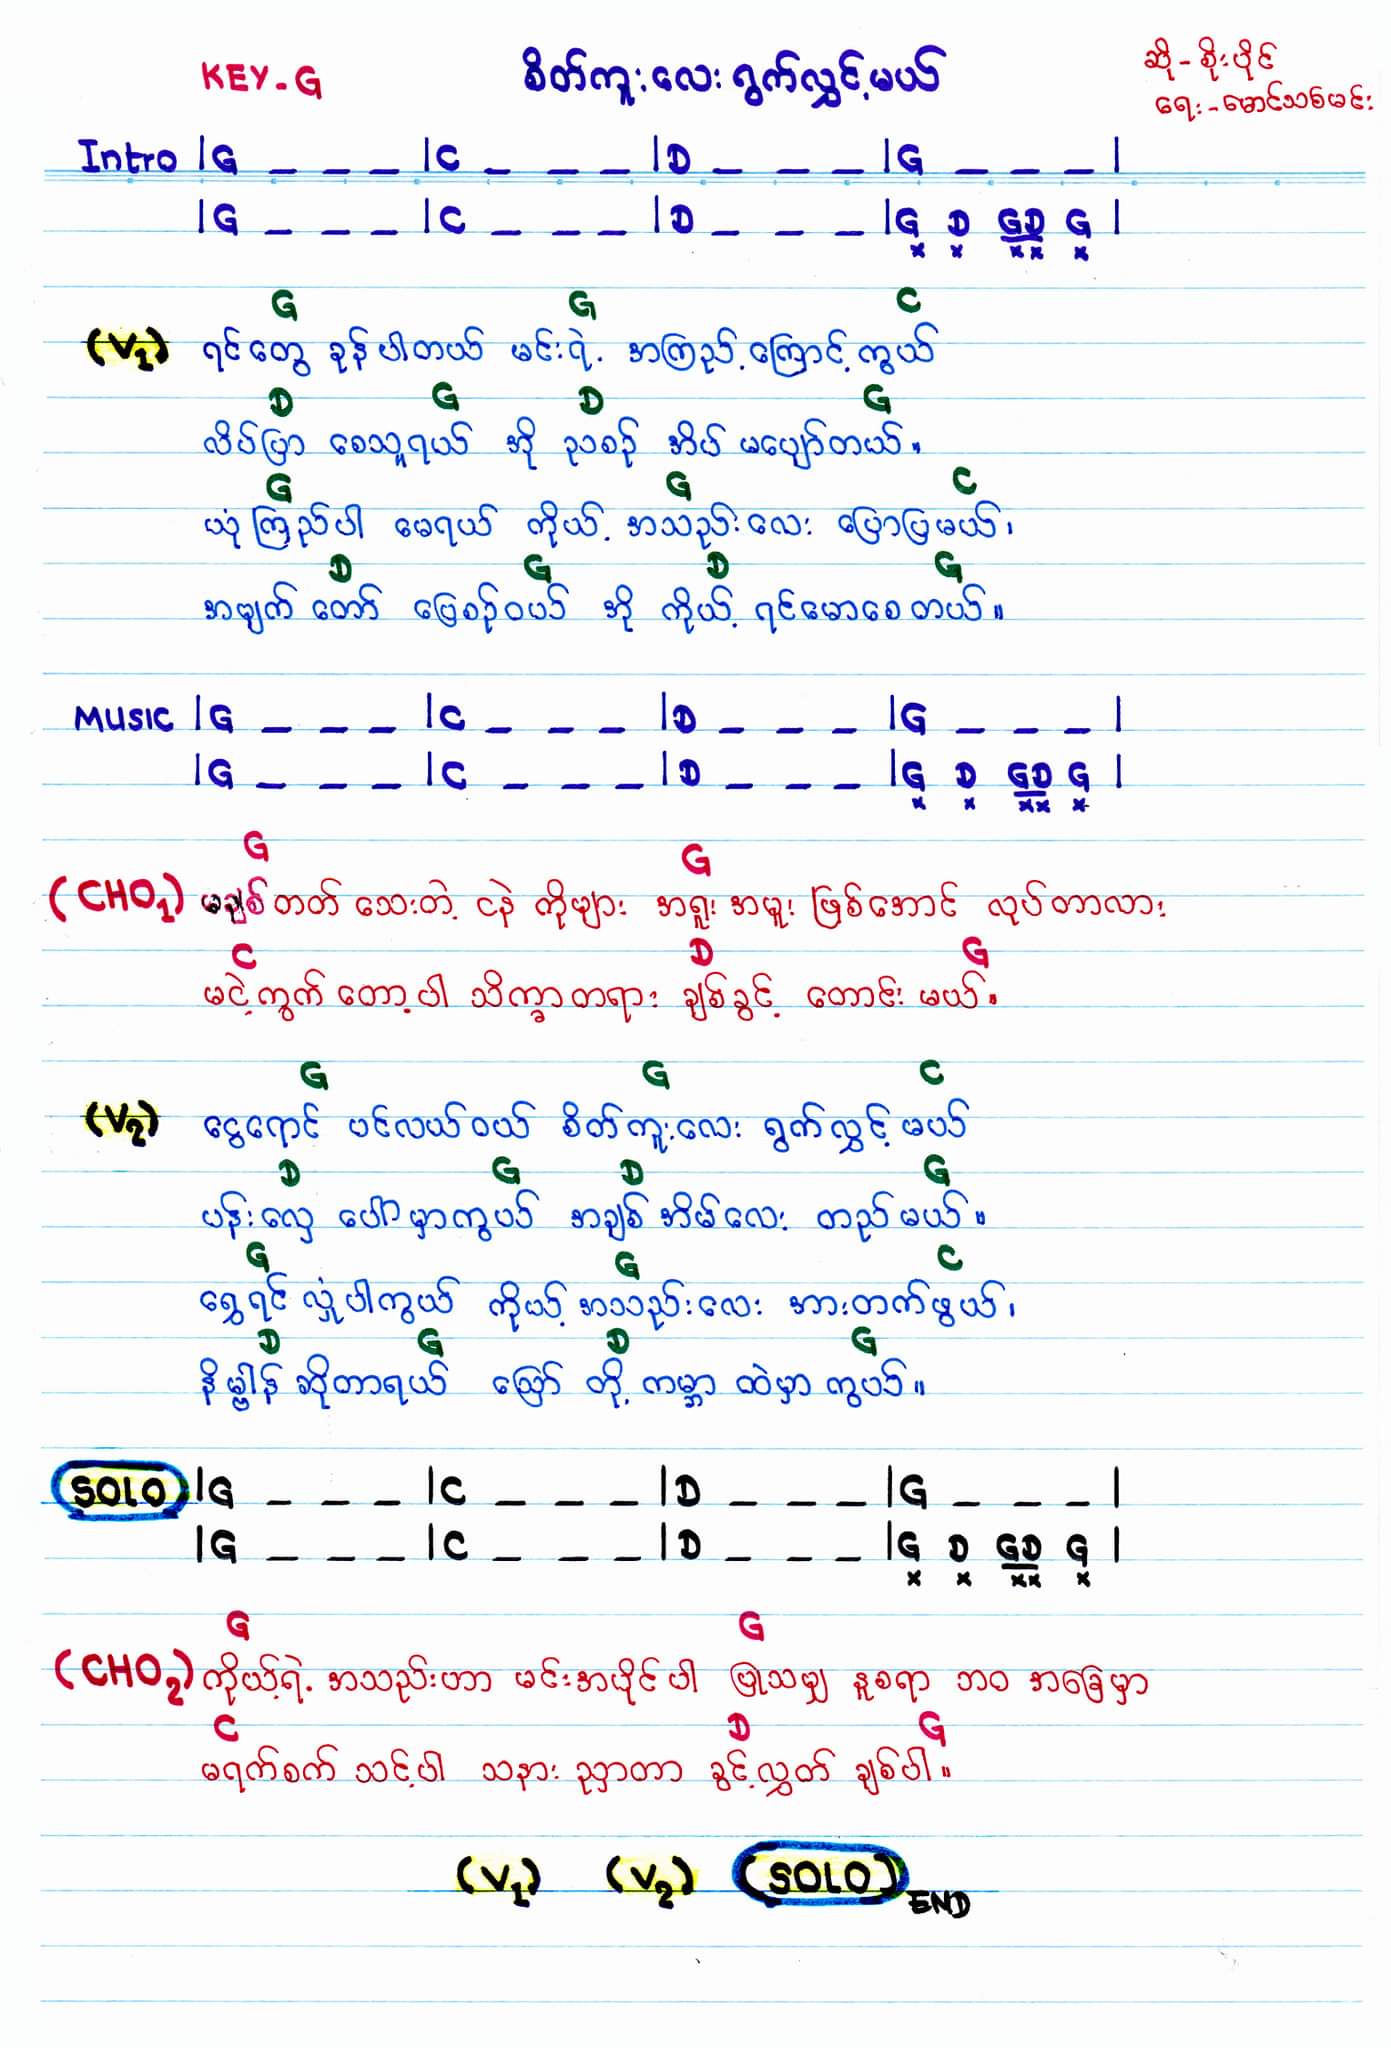 KEY-G စိတ်ကူးလေး ရွက်လွှင့်မယ် ဆို-စိုးပိုင်
ရေး-မောင်သစ်မင်း
Intro |G _ _ _ |C _ _ _ |D _ _ _ |G _ _ _ |
|G _ _ _ |C _ _ _ |D _ _ _ |G D GD G |
x x xx x
G G C
(V1) ရင်တွေ ခုန်ပါတယ် မင်းရဲ့ အကြည့်ကြောင့်ကွယ်
D G D G
လိပ်ပြာ စေသူရယ် အို ညစဉ် အိပ် မပျော်တယ်။
G G C
ယုံကြည်ပါ မေရယ် ကိုယ့် အသည်းလေး ပြောပြမယ်၊
D G D G
အမျက်တော် ပြေစဉ်ဝယ် အို ကိုယ့် ရင်မောစေတယ်။
MUSIC |G _ _ _ |C _ _ _ |D _ _ _ |G _ _ _ |
|G _ _ _ |C _ _ _ |D _ _ _ |G D GD G |
x x xx x
G G
(CHO1) မချစ်တတ်သေးတဲ့ ငနဲ ကိုများ အရူး အမူး ဖြစ်အောင် လုပ်တာလား
C D G
မငဲ့ကွက်တော့ပါ သိက္ခာတရား ချစ်ခွင့် တောင်းမယ်။
G G C
(V2) ငွေရောင် ပင်လယ်ဝယ် စိတ်ကူးလေး ရွက်လွှင့်မယ်
D G D G
ပန်းလှေ ပေါ်မှာကွယ် အချစ်အိမ်လေး တည်မယ်။
G G C
ရွှေရင် လှုံပါကွယ် ကိုယ့် အသည်းလေး အားတက်ဖွယ်၊
D G D G
နိဗ္ဗာန် ဆိုတာရယ် သြော် တို့ ကမ္ဘာ ထဲမှာ ကွယ်။
SOLO |G _ _ _ |C _ _ _ |D _ _ _ |G _ _ _ |
|G _ _ _ |C _ _ _ |D _ _ _ |G D GD G |
x x xx x
G G
(CHO2) ကိုယ့်ရဲ့ အသည်းဟာ မင်းအပိုင်ပါ ပြုသမျှ နူစရာ ဘဝ အခြေမှာ
C D G
မရက်စက်သင့်ပါ သနားညှာတာ ခွင့်လွှတ် ချစ်ပါ။
(V1) (V2) (SOLO) END